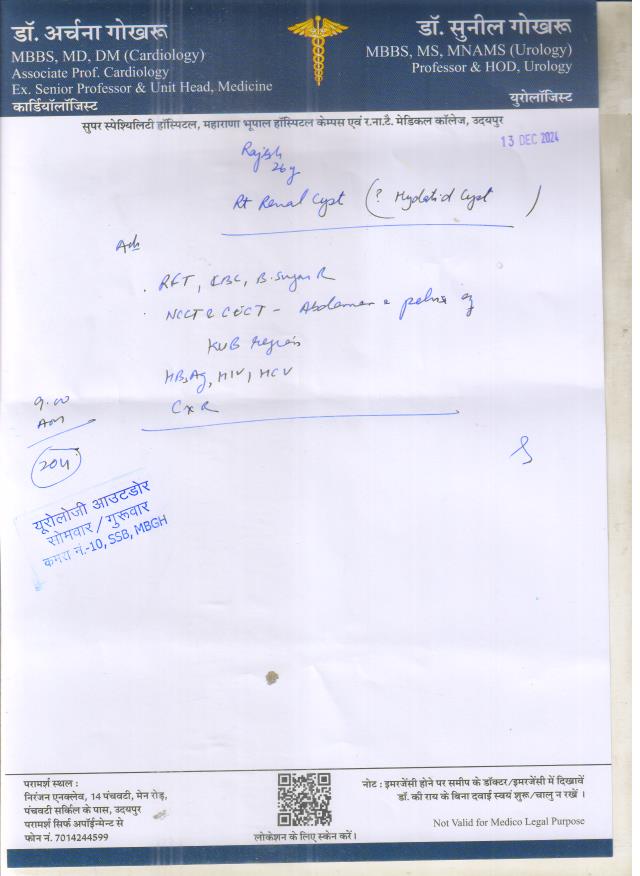 डॉ. अर्चना गोखरू
MBBS, MD, DM (Cardiology)
Associate Prof. Cardiology
Ex. Senior Professor & Unit Head, Medicine
कार्डियॉलॉजिस्ट
डॉ. सुनील गोखरू
MBBS, MS, MNAMS (Urology)
Professor & HOD, Urology
युरोलॉजिस्ट
सुपर स्पेश्यिलिटी हॉस्पिटल, महाराणा भूपाल हॉस्पिटल केम्पस एवं र.ना.टै. मेडिकल कॉलेज, उदयपुर
13 DEC 2024
26y
Rt Renal Cyst (? Hydatid Cyst)
Adv
RFT, CBC, B. Sugar R
NCCT & CECT - Abdomen & pelvis
KUB region
HBsAg, HIV, HCV
CxR
9.00
Am
204
यूरोलोजी आउटडोर
सोमवार / गुरूवार
कमरा नं.-10, SSB, MBGH
परामर्श स्थल :
निरंजन एनक्लेव, 14 पंचवटी, मेन रोड़,
पंचवटी सर्किल के पास, उदयपुर
परामर्श सिर्फ अपॉईन्मेन्ट से
फोन नं. 7014244599
लोकेशन के लिए स्केन करें।
नोट : इमरजेंसी होने पर समीप के डॉक्टर/इमरजेंसी में दिखावें
डॉ. की राय के बिना दवाई स्वयं शुरू/चालु न रखें ।
Not Valid for Medico Legal Purpose